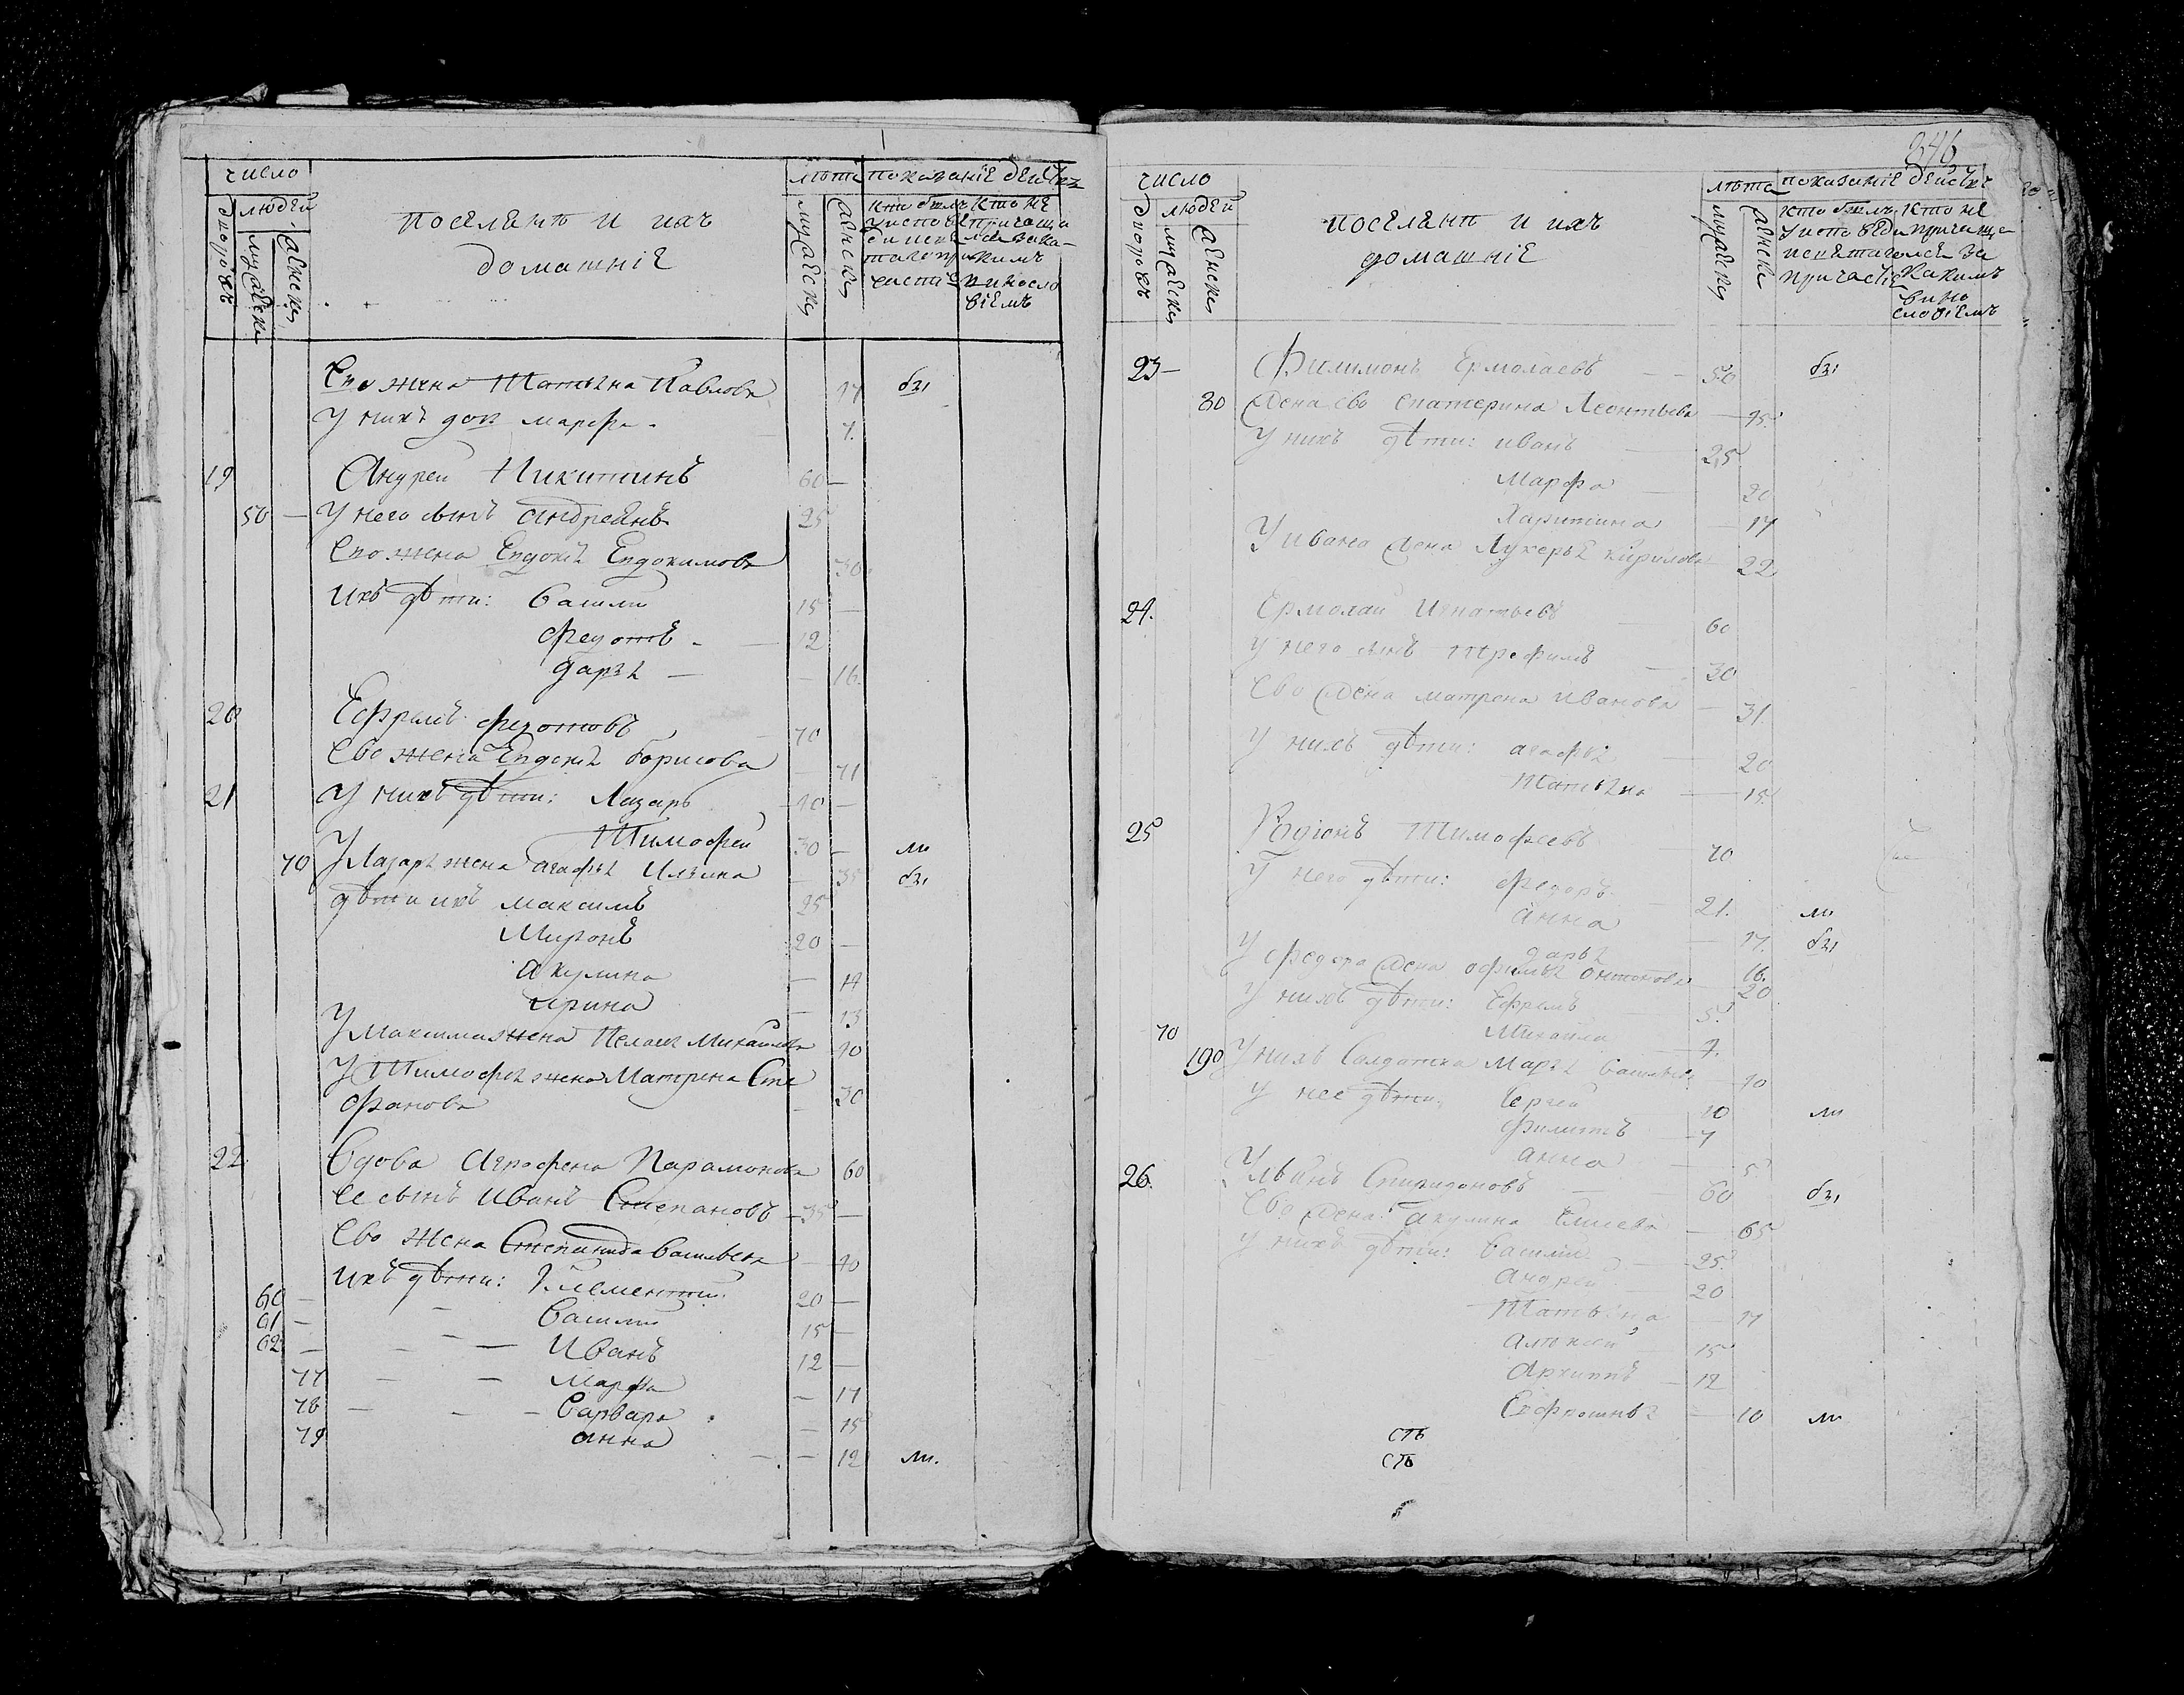 число
людей
дворовъ
мужеска
женска
поселянѣ и ихъ
домашніе
лѣта
мужеска
женска
показаніе действъ
кто былъ
у исповеди и святаго причастія
кто не
причащался за какимъ
винословіемъ
Ево жена Татьяна Павлова 17 бы
У нихъ доч Марфа 7.
19 Андреи Никитинъ 60
50 У него сынъ андреянъ 25
Ево жена Евдокія Евдокимова 30.
Ихъ дѣти: Василии 15
Федотъ 12
дарья 16.
20 Ефремъ Федотовъ 70
Ево жена Евдокія борисова 71
21 У нихъ дѣти: Лазарь 40
Тимофеи 30 ми
70 У Лазаря жена агафья Ильина 35 бы
дѣти ихъ Максимъ 25
Миронъ 20
акулина 14
ирина 13
У Максима жена Пелагея Михаилова 40
У Тимофея жена Матрена Сте
фанова 30
22. Вдова Агрофена Парамонова 60
Ее сынъ Иванъ Степановъ 35
Ево жена Степанида Васильева 40
60 Ихъ дѣти: Климентии 20
61 Василии 15
62 Иванъ 12
77 Марфа 17
78 Варвара 15
79 анна 12 ми.
846
число
людей
дворовъ
мужеска
женска
поселянѣ и ихъ
домашніе
лѣта
мужеска
женска
показаніе действъ
кто былъ
у исповеди
и святаго
причастія
кто не
причащался за
какимъ
вино
словіемъ
23 Филимонъ Ермолаевъ 50 бы
80 Жена ево екатерина Леонтьева 45.
У нихъ дѣти: иванъ 25
Марфа 20
Харитина 17
У ивана жена Лукерья кирилова 22.
24. Ермолаи Игнатьевъ 60
У него сынъ Трофимъ 30
Ево жена матрена иванова 31.
У нихъ дѣти: агафья 20
Татьяна 15.
25 Родіонъ Тимофеевъ 70
У него дѣти: федоръ 21. ми
анна 17. бы
дарья 16.
У федора жена офимья онтонова 20
У нихъ дѣти: Ефремъ 5.
70 Михаила 7.
190 У нихъ Салдатка Марья Васильева 40
У нее дѣти: Сергеи 10 ми
Филипъ 7
анна 5
26. Ульянъ Спиридоновъ 60 бы
Ево жена акулина Елисева 65
У нихъ дѣти: Василии 25.
андреи 20
Татьяна 17
алексеи 15
Архипъ 12
10 ми
сть
сть